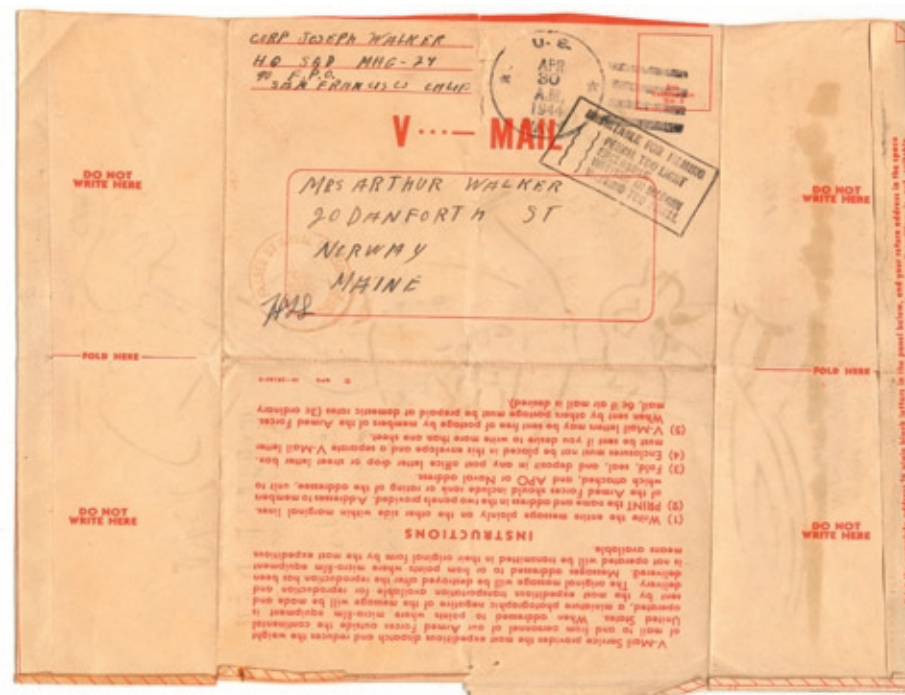 CORP JOSEPH WALKER
HQ SQD MAG-24
℅ F.P.O.
SAN FRANCISCO CALIF
U. S.
APR
30
A.M.
1944
V···— MAIL
PENCIL TOO LIGHT
MRS ARTHUR WALKER
20 DANFORTH ST
NORWAY
MAINE
DO NOT
WRITE HERE
DO NOT
WRITE HERE
FOLD HERE
FOLD HERE
DO NOT
WRITE HERE
DO NOT
WRITE HERE
V-Mail Service provides the most expeditious dispatch and reduces the weight
of mail to and from personnel of our Armed Forces outside the continental
United States. When addressed to points where micro-film equipment is
operated, a miniature photographic negative of the message will be made and
sent by the most expeditious transportation available for reproduction and
delivery. The original message will be destroyed after the reproduction has been
delivered. Messages addressed to or from points where micro-film equipment
is not operated will be transmitted in their original form by the most expeditious
means available
INSTRUCTIONS
(1) Write the entire message plainly on the other side within marginal lines.
(2) PRINT the name and address in the two panels provided. Addresses to members
of the Armed Forces should include rank or rating of the addressee, unit to
which attached, and APO or Naval address.
(3) Fold, seal, and deposit in any post office letter drop or street letter box.
(4) Enclosures must not be placed in this envelope and a separate V-Mail letter
must be sent if you desire to write more than one sheet.
(5) V-Mail letters may be sent free of postage by members of the Armed Forces.
When sent by others postage must be prepaid at domestic rates (3c ordinary
mail, 6c if air mail is desired).
black letters in the panel below, and your return address in the space